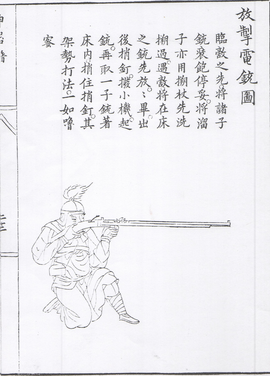 放掣電銃圖
臨敵之先將諸子
銃裝飽停妥將溜
子亦用搠杖先洗
搠過遇敵將在床
之銃先放〻畢出
後捎釘撥小機起
銃再取一子銃著
床內捎住捎釘其
架勢打法一如嚕
蜜